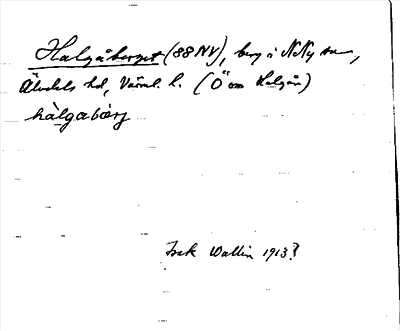 Halgåberget (88NV), berg i N Ny sn,
Älvdals hd, Värml. l. (Ö om Halgån)
hàlgabærj
Isak Wallin 1913?